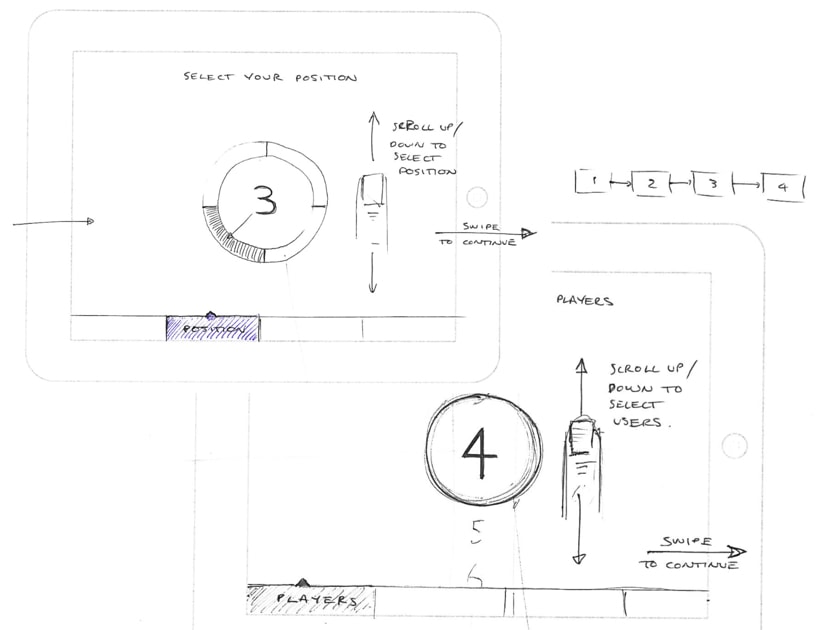 SELECT YOUR POSITION
SCROLL UP/
DOWN TO
SELECT
POSITION
3
SWIPE
TO CONTINUE
POSITION
1
2
3
4
PLAYERS
SCROLL UP/
DOWN TO
SELECT
USERS.
4
5
6
SWIPE
TO CONTINUE
PLAYERS